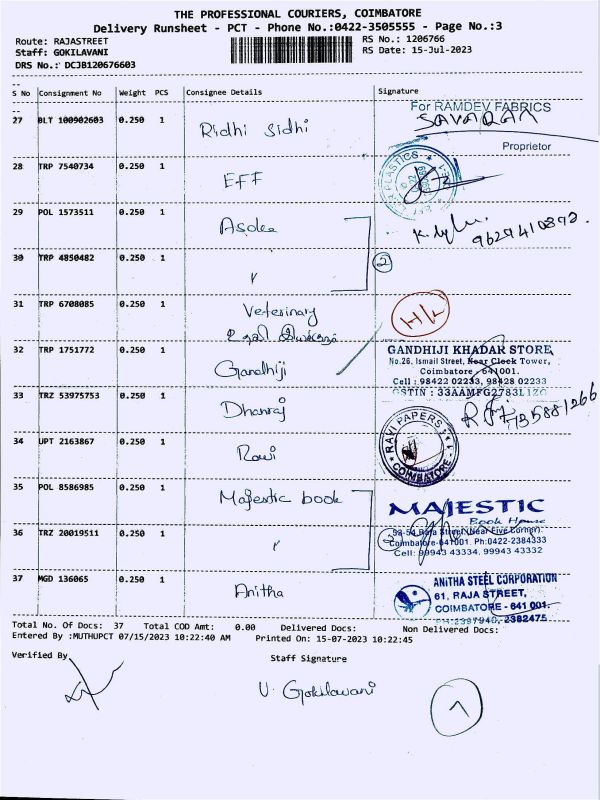 THE PROFESSIONAL COURIERS, COIMBATORE
Delivery Runsheet - PCT - Phone No.:0422-3505555 - Page No.:3
Route: RAJASTREET
RS No.: 1206766
Staff: GOKILAVANI
RS Date: 15-Jul-2023
DRS No.: DCJB120676603
S No Consignment No Weight PCS Consignee Details Signature
27 BLT 100902603 0.250 1 Ridhi Sidhi
For RAMDEV FABRICS
Proprietor
28 TRP 7540734 0.250 1 EFF
29 POL 1573511 0.250 1 Asoka
30 TRP 4850482 0.250 1 "
2
31 TRP 6708085 0.250 1 Veterinary
H/L
32 TRP 1751772 0.250 1 Gandhiji
GANDHIJI KHADAR STORE
No.26, Ismail Street, Near Clock Tower,
Coimbatore - 641001.
Cell : 98422 02233, 98428 02233
33 TRZ 53975753 0.250 1 Dhanraj
34 UPT 2163867 0.250 1 Ravi
RAVI PAPERS
COIMBATORE
35 POL 8586985 0.250 1 Majestic book
MAJESTIC
Book House
36 TRZ 20019511 0.250 1 "
Coimbatore-641001. Ph:0422-2384333
Cell: 99943 43334, 99943 43332
37 MGD 136065 0.250 1 Anitha
ANITHA STEEL CORPORATION
61, RAJA STREET,
COIMBATORE - 641 001.
PH:2397940, 2382475
Total No. Of Docs: 37 Total COD Amt: 0.00 Delivered Docs: Non Delivered Docs:
Entered By :MUTHUPCT 07/15/2023 10:22:40 AM Printed On: 15-07-2023 10:22:45
Verified By
Staff Signature
V. Gokilavani